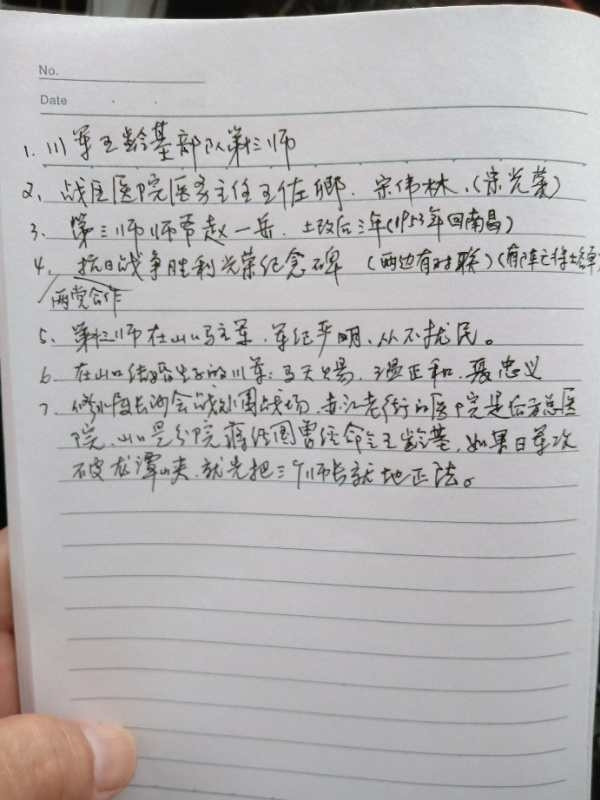 No.
Date
1. 川军王龄基部队第三师
2、战区医院医务主任王佐卿、宗伟林、(宗光荣)
3、第三师师常赵一岳、土改后三年(1953年回南昌)
4、抗日战争胜利光荣纪念碑 (两边有对联)(有阵亡将士名单)
两党合作
5、第三师在山口驻军、军纪严明、从不扰民。
6、在山口结婚生子的川军: 马天赐、温正和、聂忠义
7、修水因长沙会战外围战场、赤江老街的医院是后方总医
院、山口是分院 蒋经国曾任命令王龄基、如果日军攻
破龙潭峡、就先把三个师长就地正法。